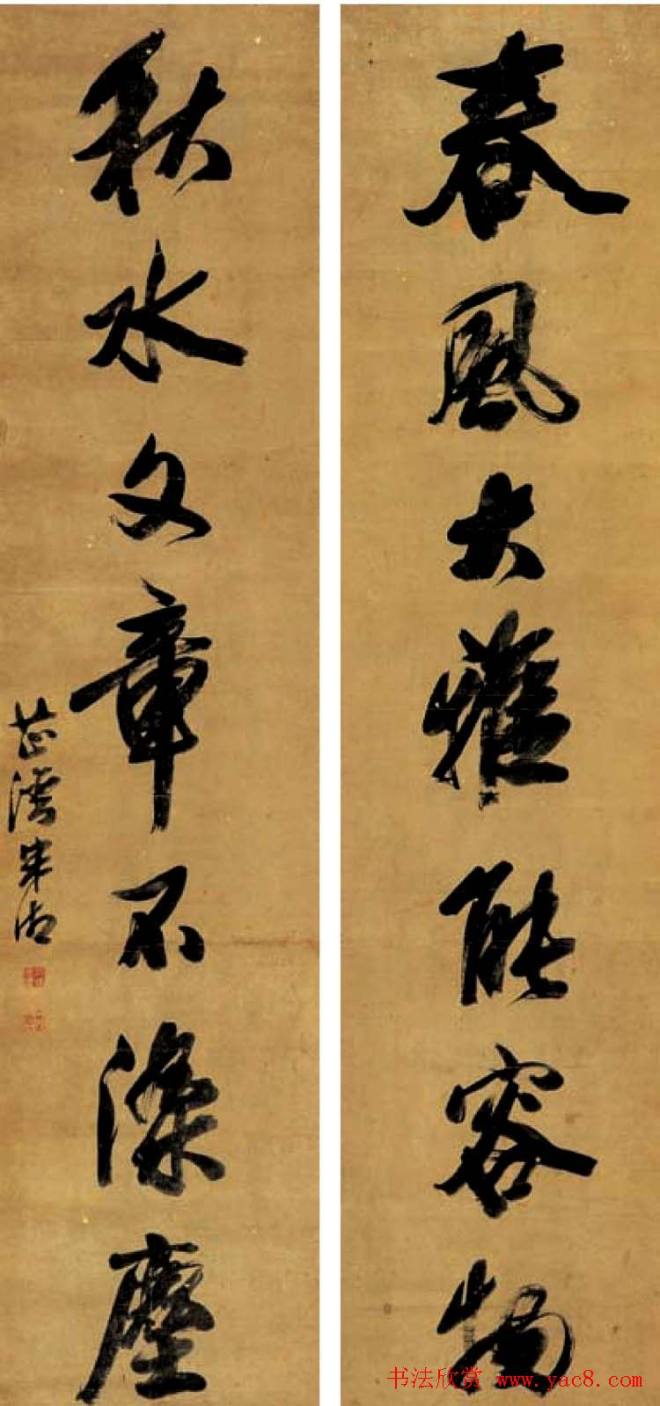 春風大雅能容物
秋水文章不染塵
芷灣宋湘
书法欣赏 www.yac8.com